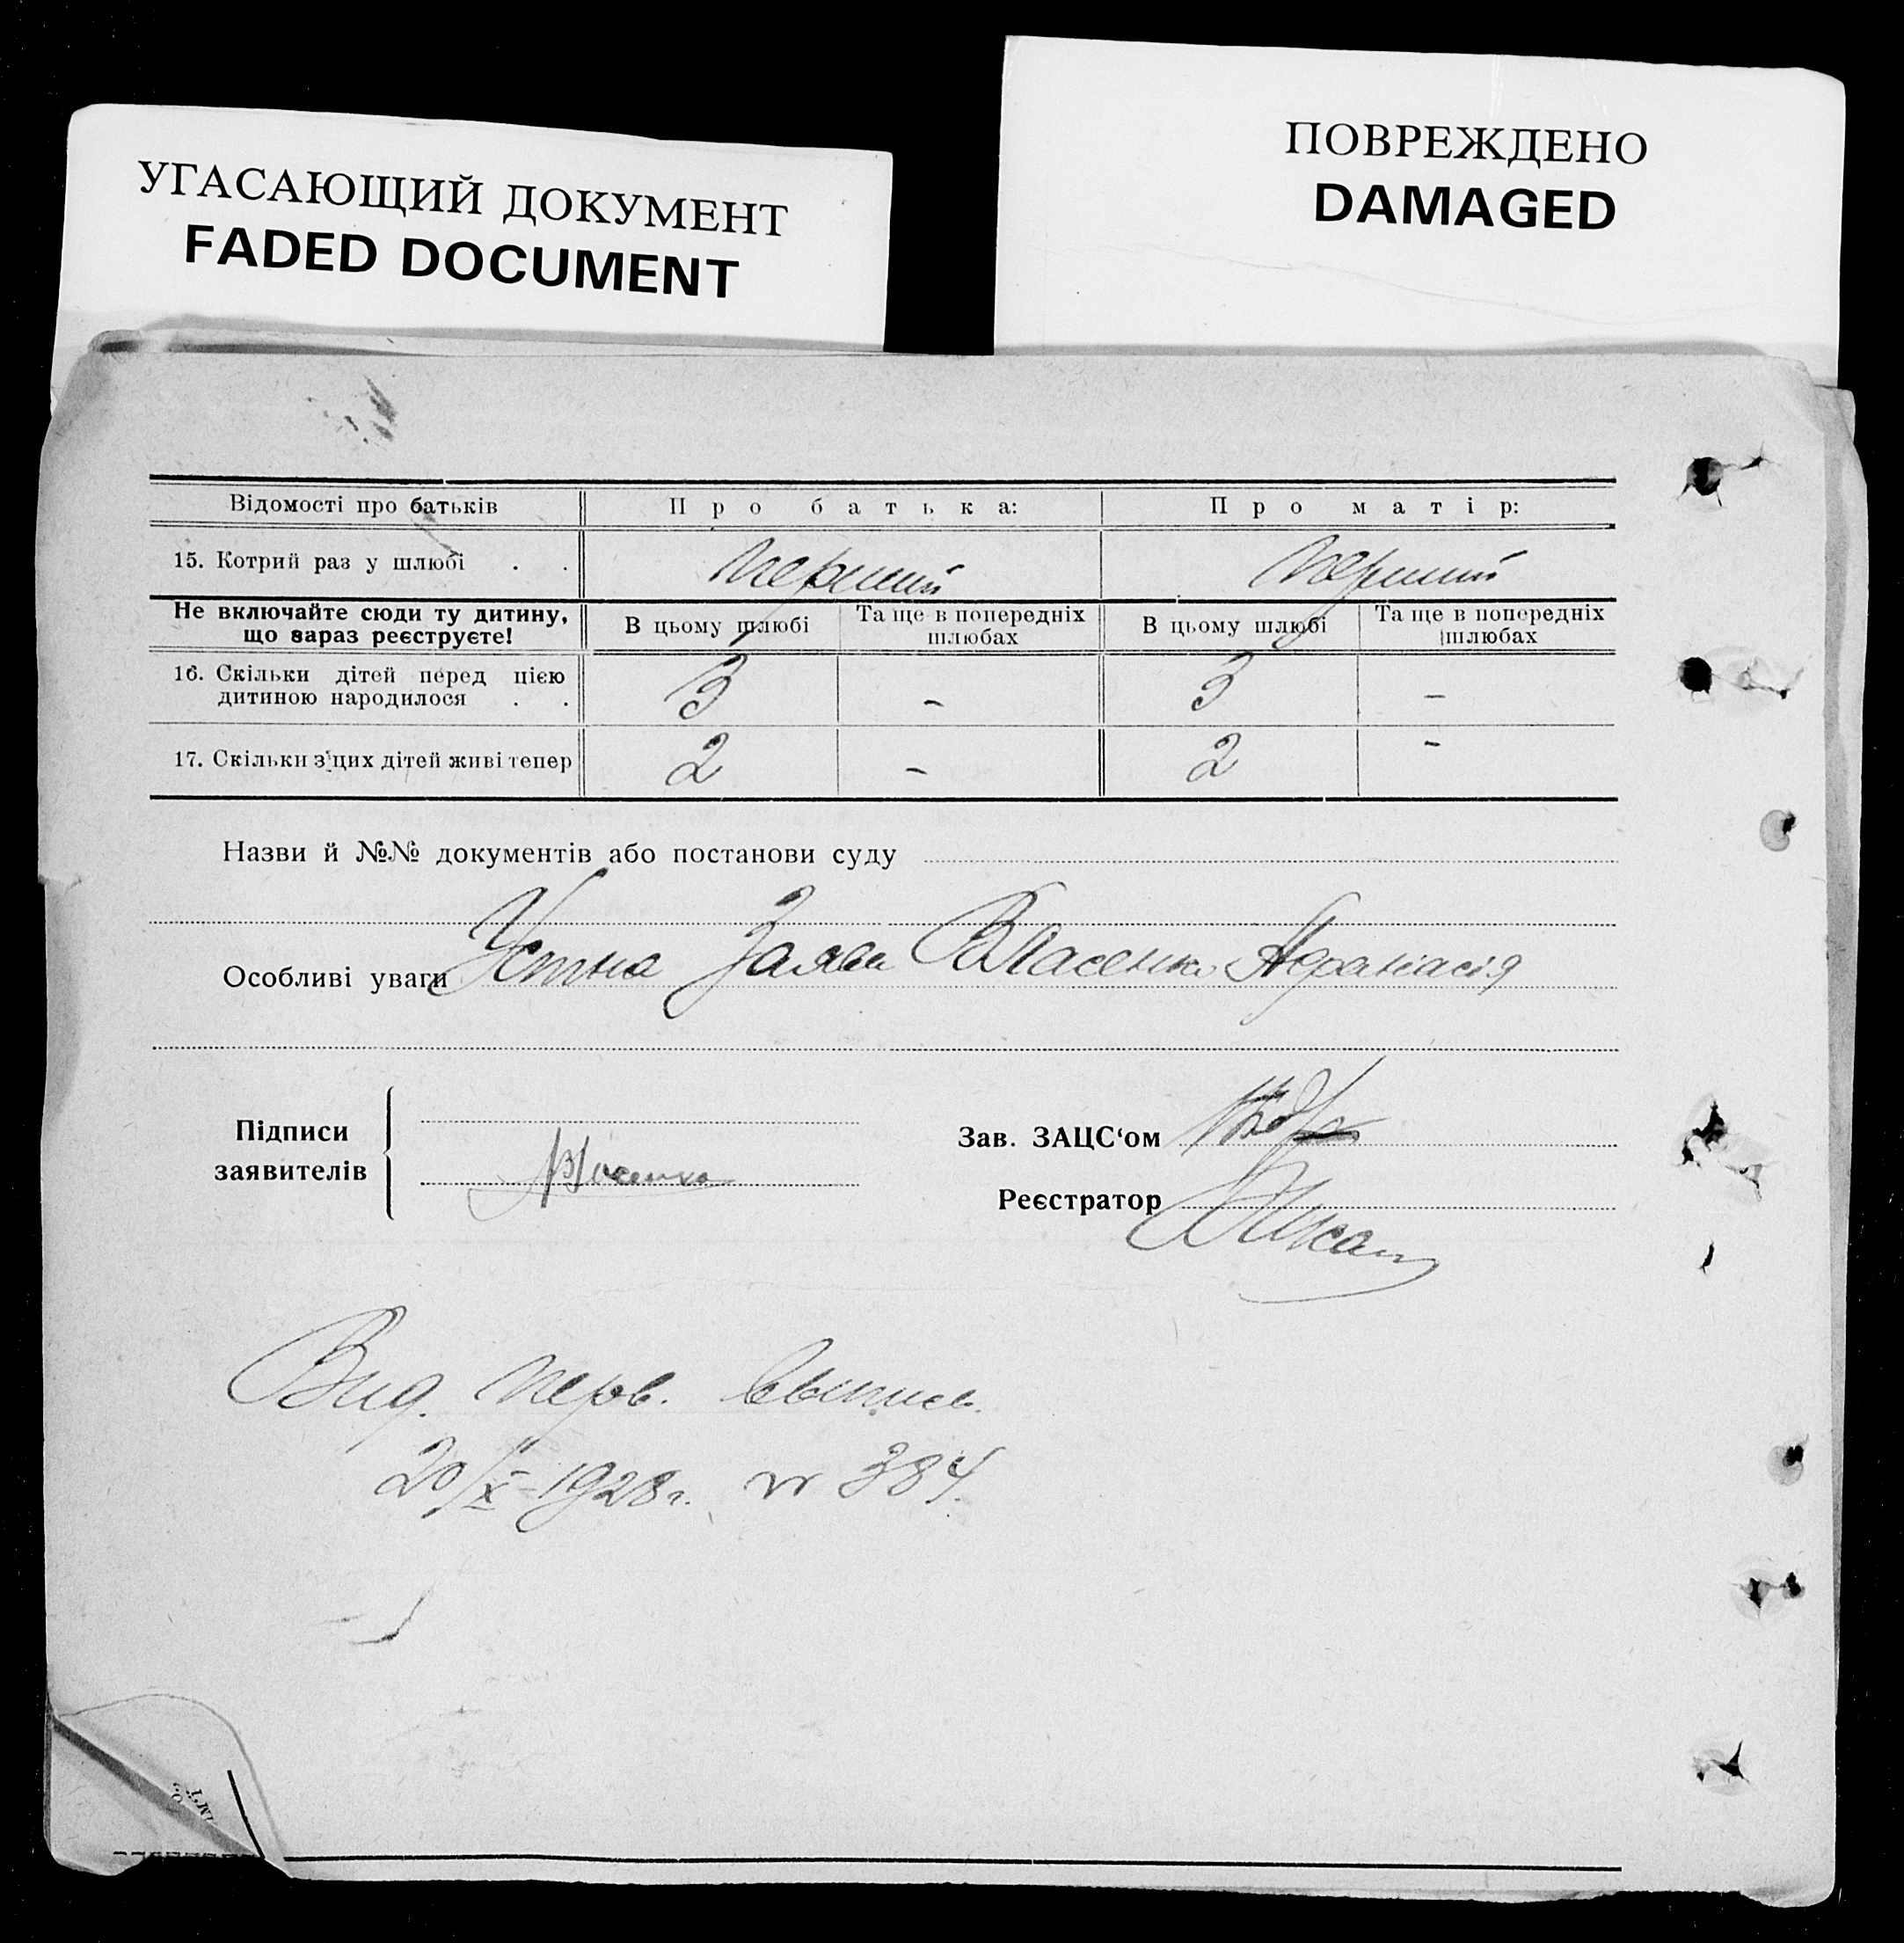 УГАСАЮЩИЙ ДОКУМЕНТ
FADED DOCUMENT
ПОВРЕЖДЕНО
DAMAGED
Відомості про батьків Про батька: Про матір:
15. Котрий раз у шлюбі . . перший перший
Не включайте сюди ту дитину, що зараз реєструєте! В цьому шлюбі Та ще в попередніх шлюбах В цьому шлюбі Та ще в попередніх шлюбах
16. Скільки дітей перед цією
дитиною народилося . . 3 - 3 -
17. Скільки з'цих дітей живі тепер 2 - 2 -
Назви й №№ документів або постанови суду
Особливі уваги Устна Заява Власенко
Підписи
заявителів Власенко
Зав. ЗАЦС‘ом
Реєстратор
Вид. перв. выпись.
20/X-1928г. № 384.